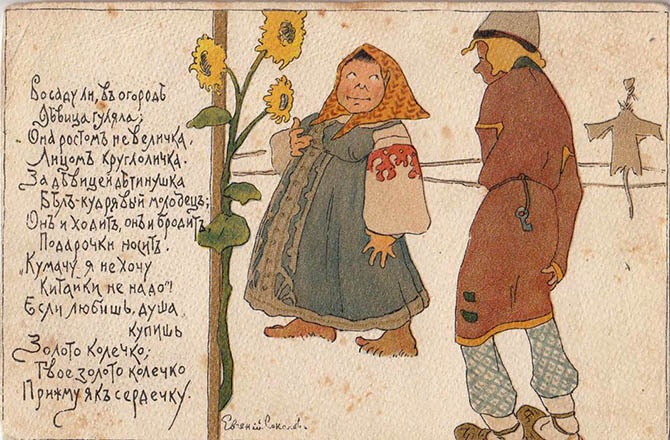 Во саду ли, въ огородѣ
Дѣвица гуляла;
Она ростомъ не величка,
Лицомъ круглоличка.
За дѣвицей дѣтинушка
Бѣлъ-кудрявый молодецъ;
Онъ и ходитъ, онъ и бродитъ,
Подарочки носитъ.
„Кумачу я не хочу
Китайки не надо"!
Если любишь, душа
купишь
Золото колечко;
Твое золото колечко
Прижму я къ сердечку.
Евгенiй Соколовъ.